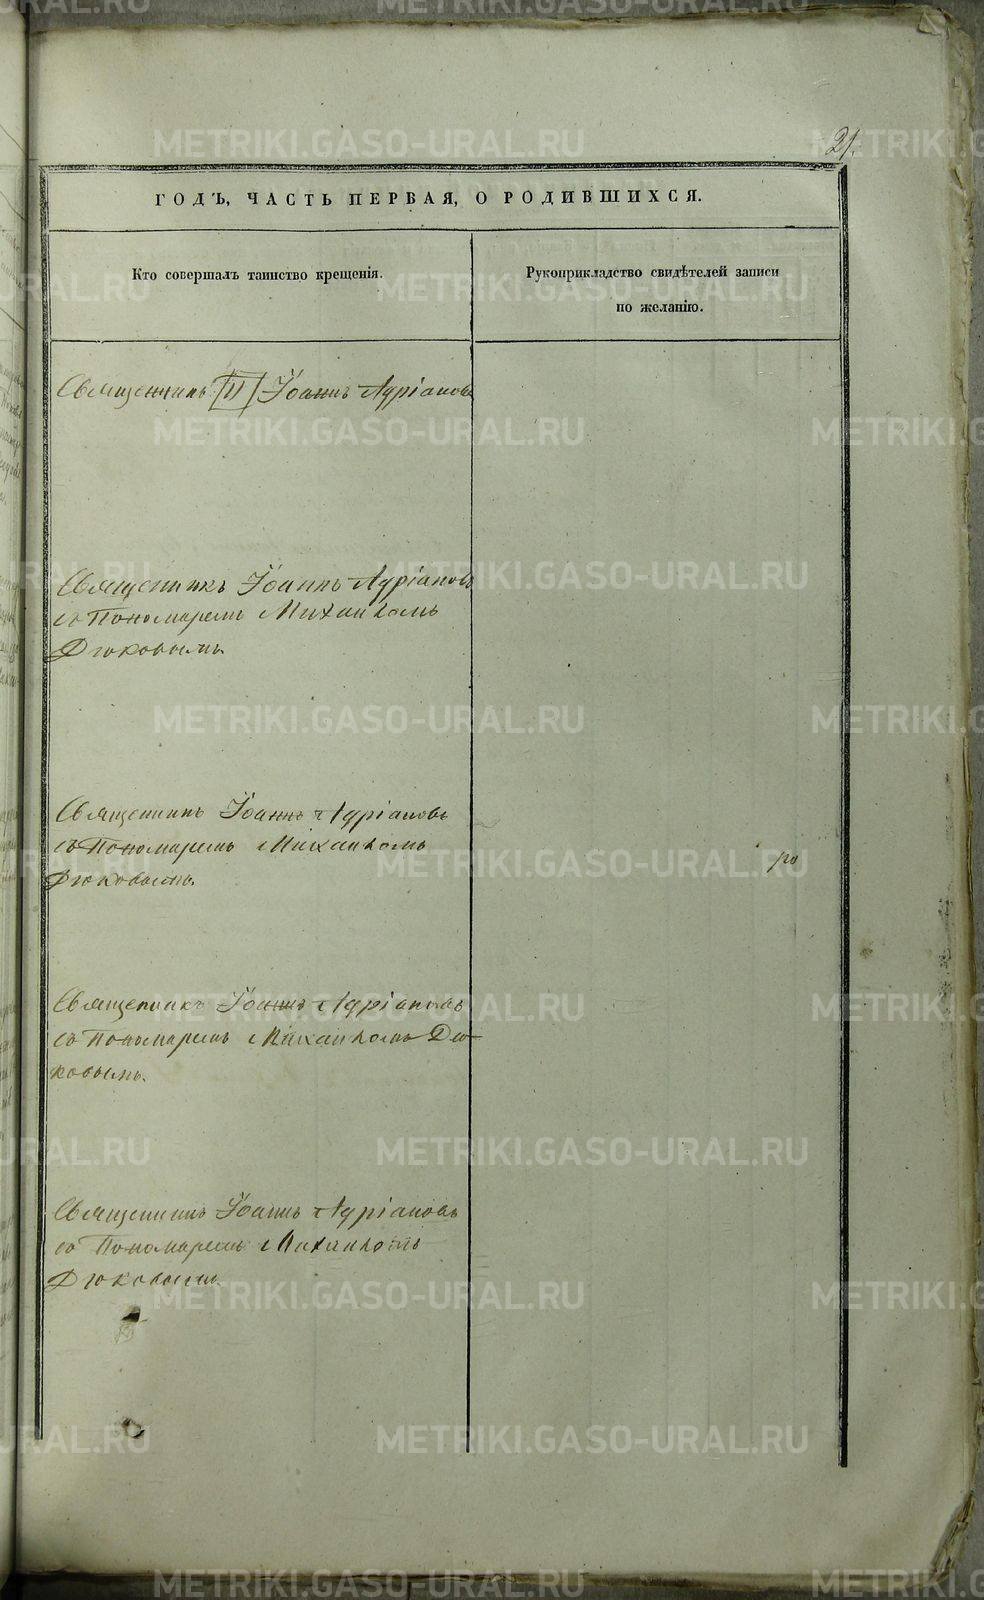 21.
ГОДЪ, ЧАСТЬ ПЕРВАЯ, О РОДИВШИХСЯ.
Кто совершалъ таинство крещенія.
Рукоприкладство свидѣтелей записи
по желанію.
Священникъ Іоаннъ Адріановъ
Священникъ Іоаннъ Адріановъ
съ Пономаремъ Михаиломъ
Дюковымъ.
Священникъ Іоаннъ Адріановъ
съ Пономаремъ Михаиломъ
Дюковымъ.
Священникъ Іоаннъ Адріановъ
съ Пономаремъ Михаиломъ Дю-
ковымъ.
Священникъ Іоаннъ Адріановъ
съ Пономаремъ Михаиломъ
Дюковымъ.
METRIKI.GASO-URAL.RU